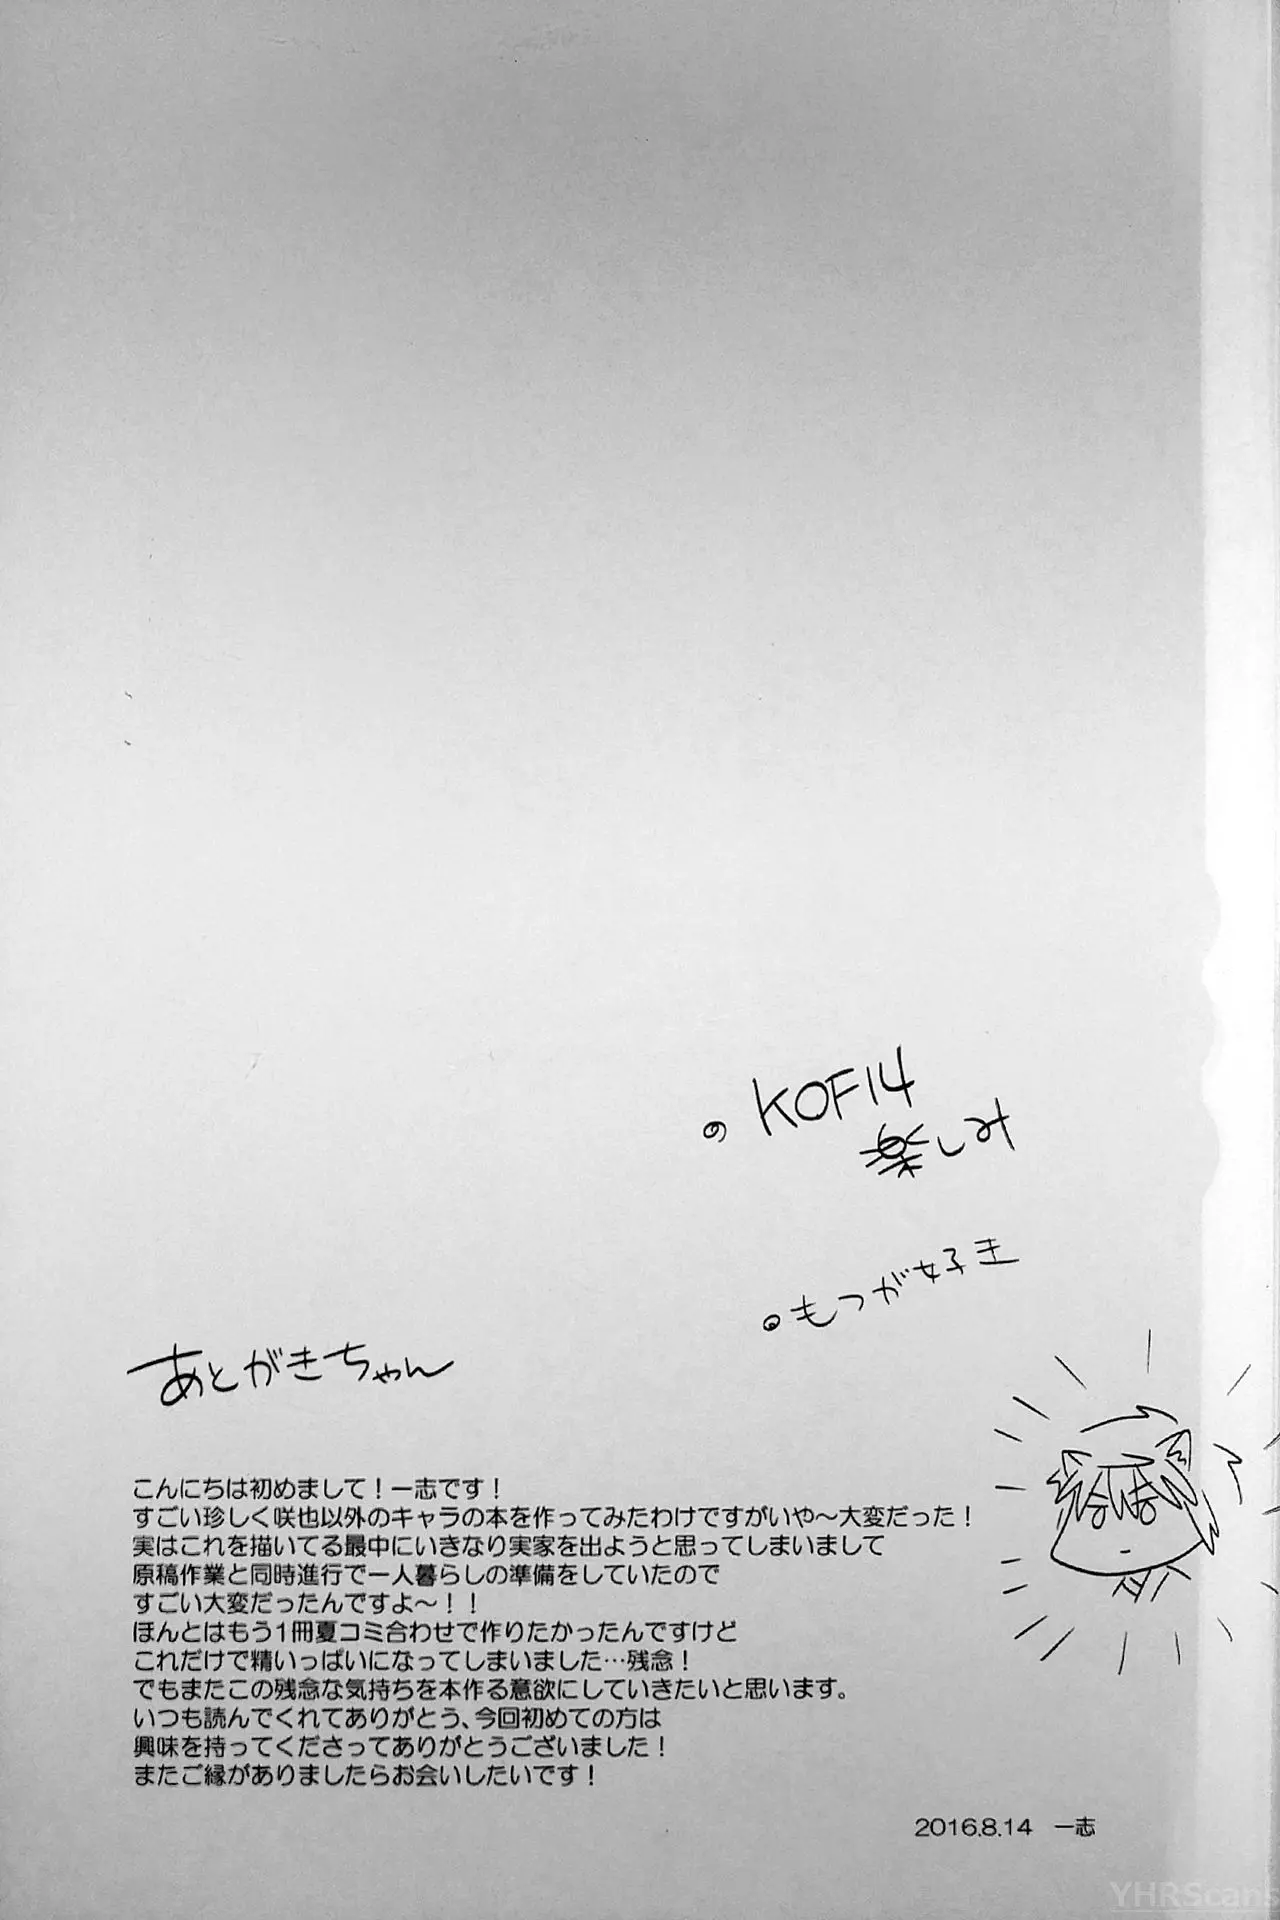 KOF14
楽しみ
もつが好き
あとがきちゃん
こんにちは初めまして！一志です！
すごい珍しく咲也以外のキャラの本を作ってみたわけですがいや〜大変だった！
実はこれを描いてる最中にいきなり実家を出ようと思ってしまいまして
原稿作業と同時進行で一人暮らしの準備をしていたので
すごい大変だったんですよ〜！！
ほんとはもう1冊夏コミ合わせで作りたかったんですけど
これだけで精いっぱいになってしまいました…残念！
でもまたこの残念な気持ちを本作る意欲にしていきたいと思います。
いつも読んでくれてありがとう、今回初めての方は
興味を持ってくださってありがとうございました！
またご縁がありましたらお会いしたいです！
2016.8.14 一志
YHRScans